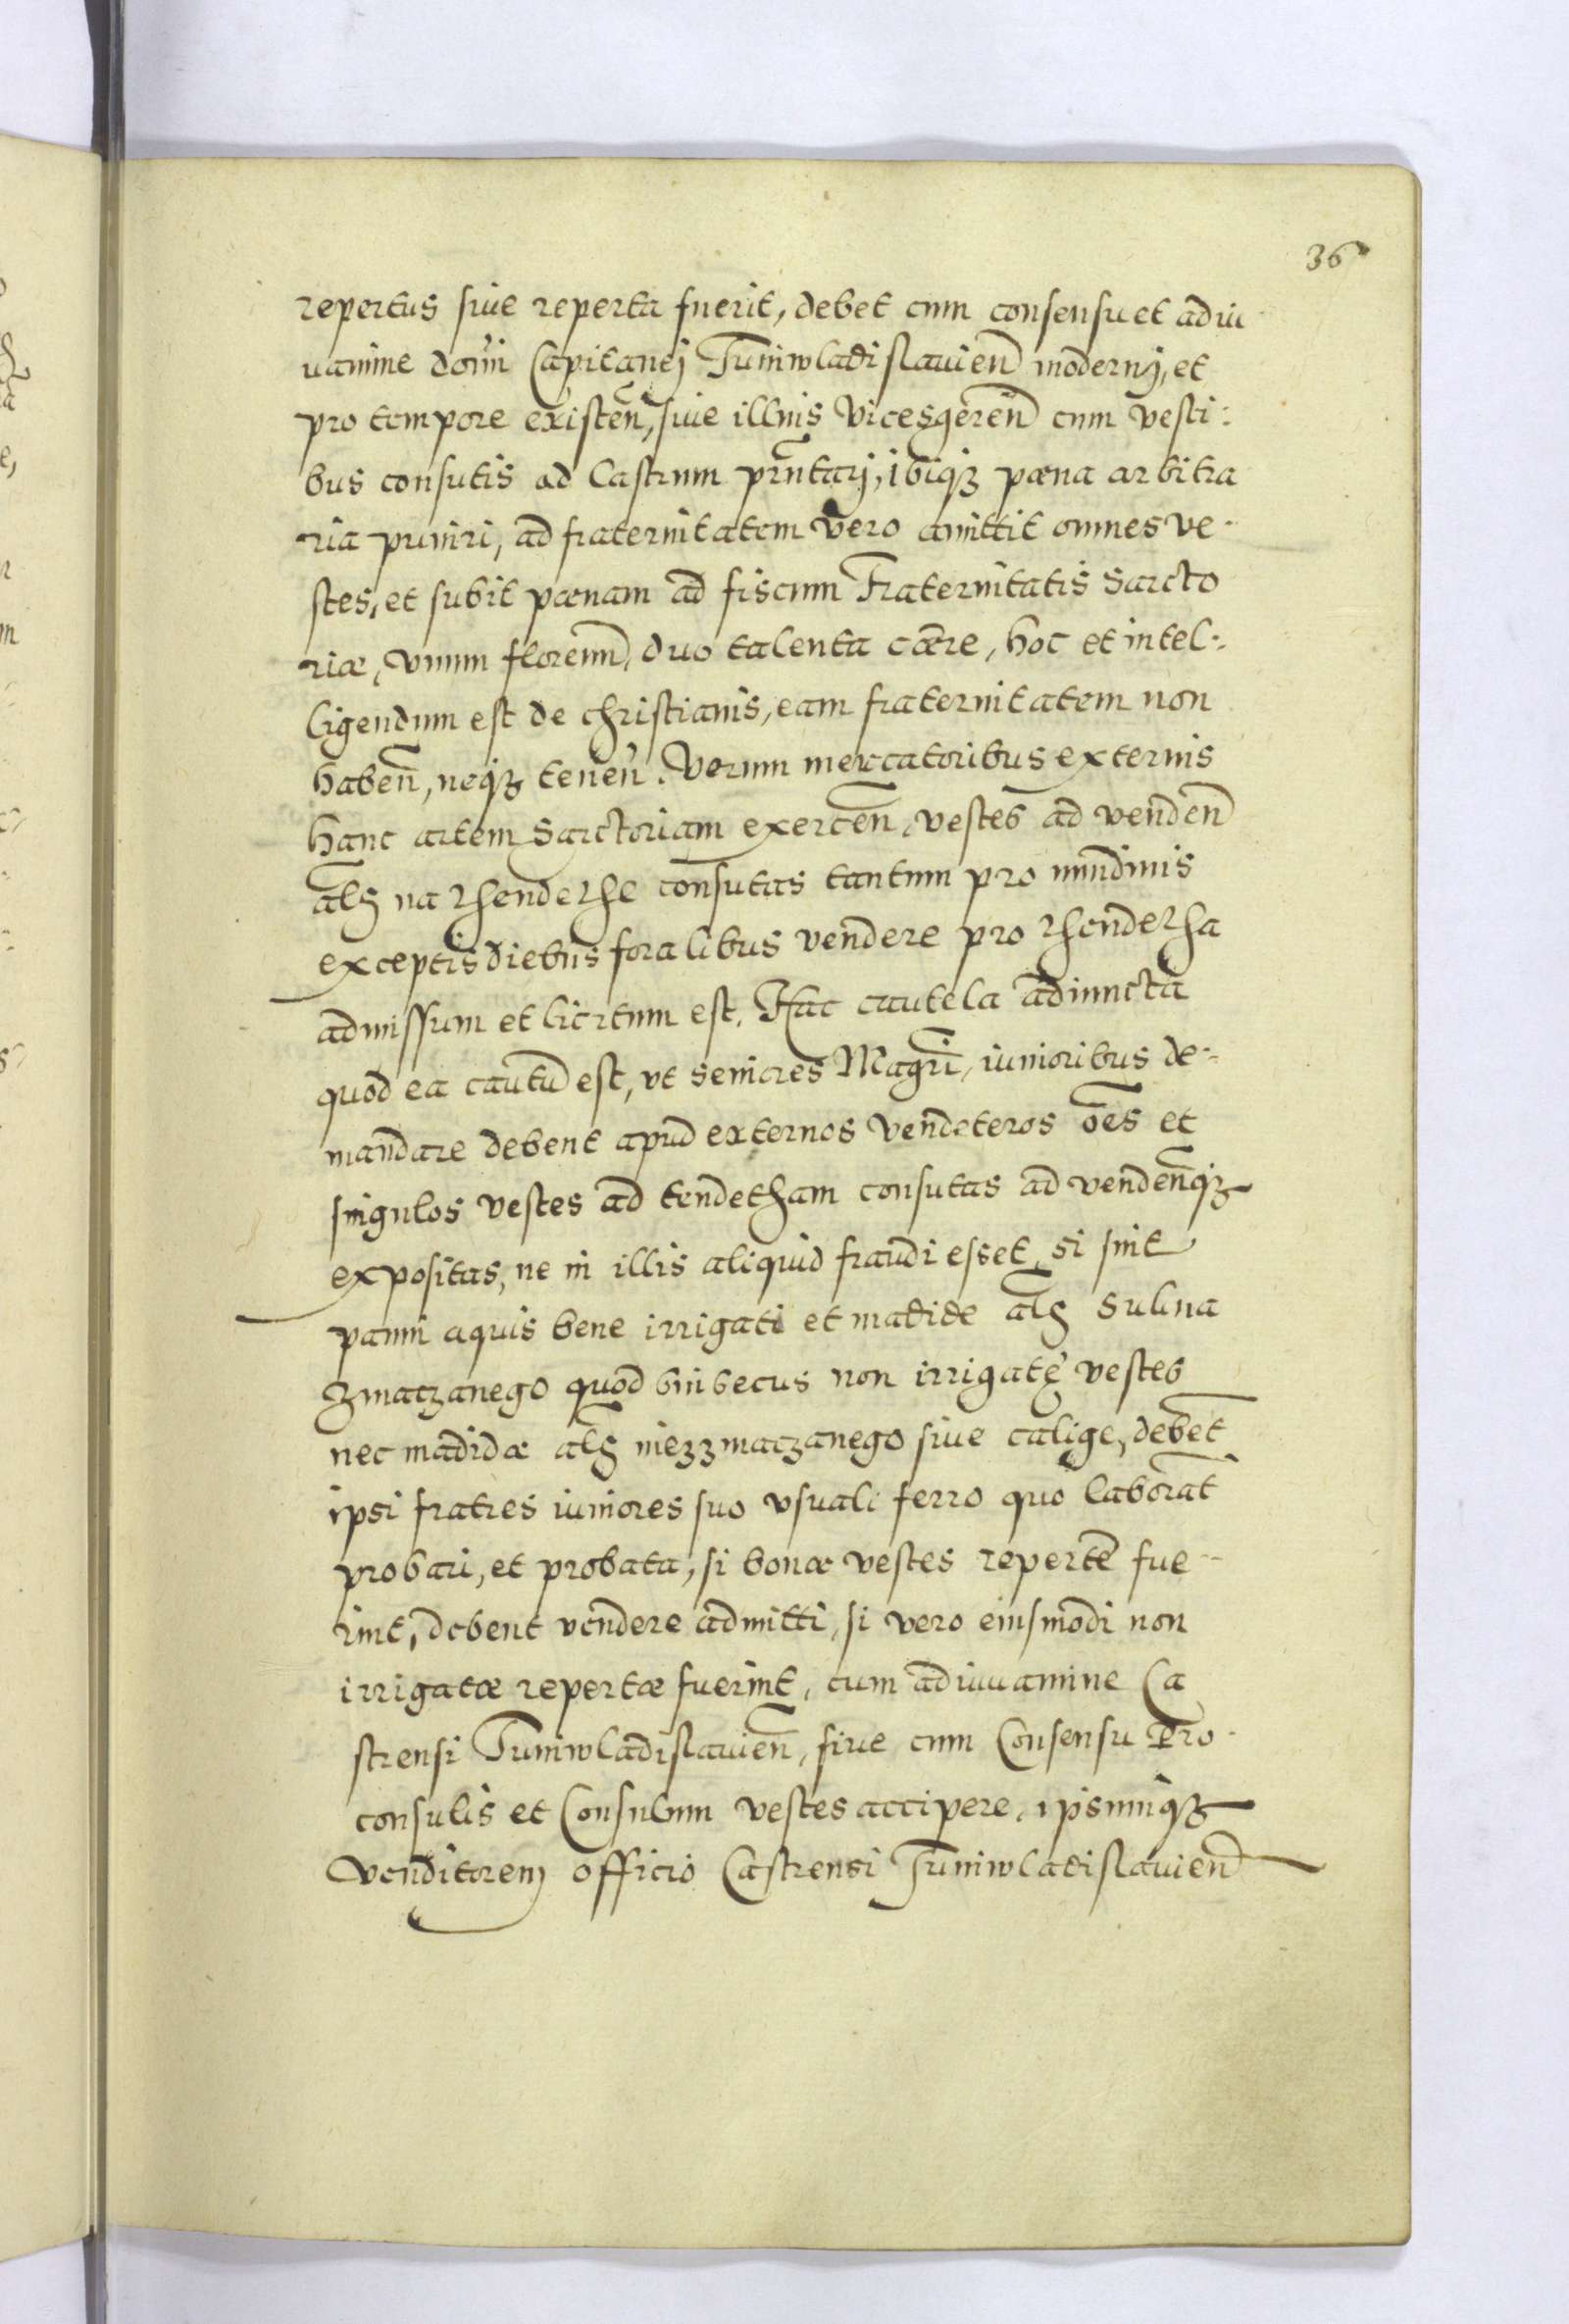 36
repertus siue reperta fuerit, debet cum consensu et adiu
uamine dom̃i Capitanej Juniwladislauien̄ modernj, et
pro tempore existen̄, siue illius vicesgeren̄ cum vesti:
bus consutis ad Castrum prñtarj, ibiqȝ pœna arbitra
ria puniri, ad fraternitatem vero amittit omnes ve-
stes, et subit pœnam ad fiscum Fraternitatis Sarcto
riæ, vnum florenū, duo talenta cære, hoc et intel-
ligendum est de christianis, eam fraternitatem non
haben̄, neqȝ tenen̄. Verum mercatoribus externis
hanc artem Sarctoriam exercen̄, vestes ad venden̄
als̄ na thendethe consutas tantum pro nundinis
exceptis diebus foralibus vendere pro thendetha
admissum et licitum est. Hac cautela adiuncta
quod ea cautū est, vt seniores Magrī, iunioribus de-
mandare debent apud externos vendeteros ōes et
singulos vestes ad tendetham consutas ad vendenqȝ
expositas, ne in illis aliquid fraudi esset, si sint
panni aquis bene irrigati et madide als̄ Sukna
zmaczanego quod si vn̄ secus non irrigatę vestes
nec madidæ als̄ niezzmaczanego siue calige, debēt
ipsi fratres iuniores suo vsuali ferro quo laborāt
probari, et probata, si bonæ vestes repertē fue-
rint, debent vendere admitti, si vero eiusmodi non
irrigatæ repertæ fuerint, cum adiuuamine Ca
strensi Juniwladislauien̄, siue cum Consensu Pro-
consulis et Consulum vestes accipere, ipsumqȝ
venditorem officio Castrensi Juniwladislauien̄